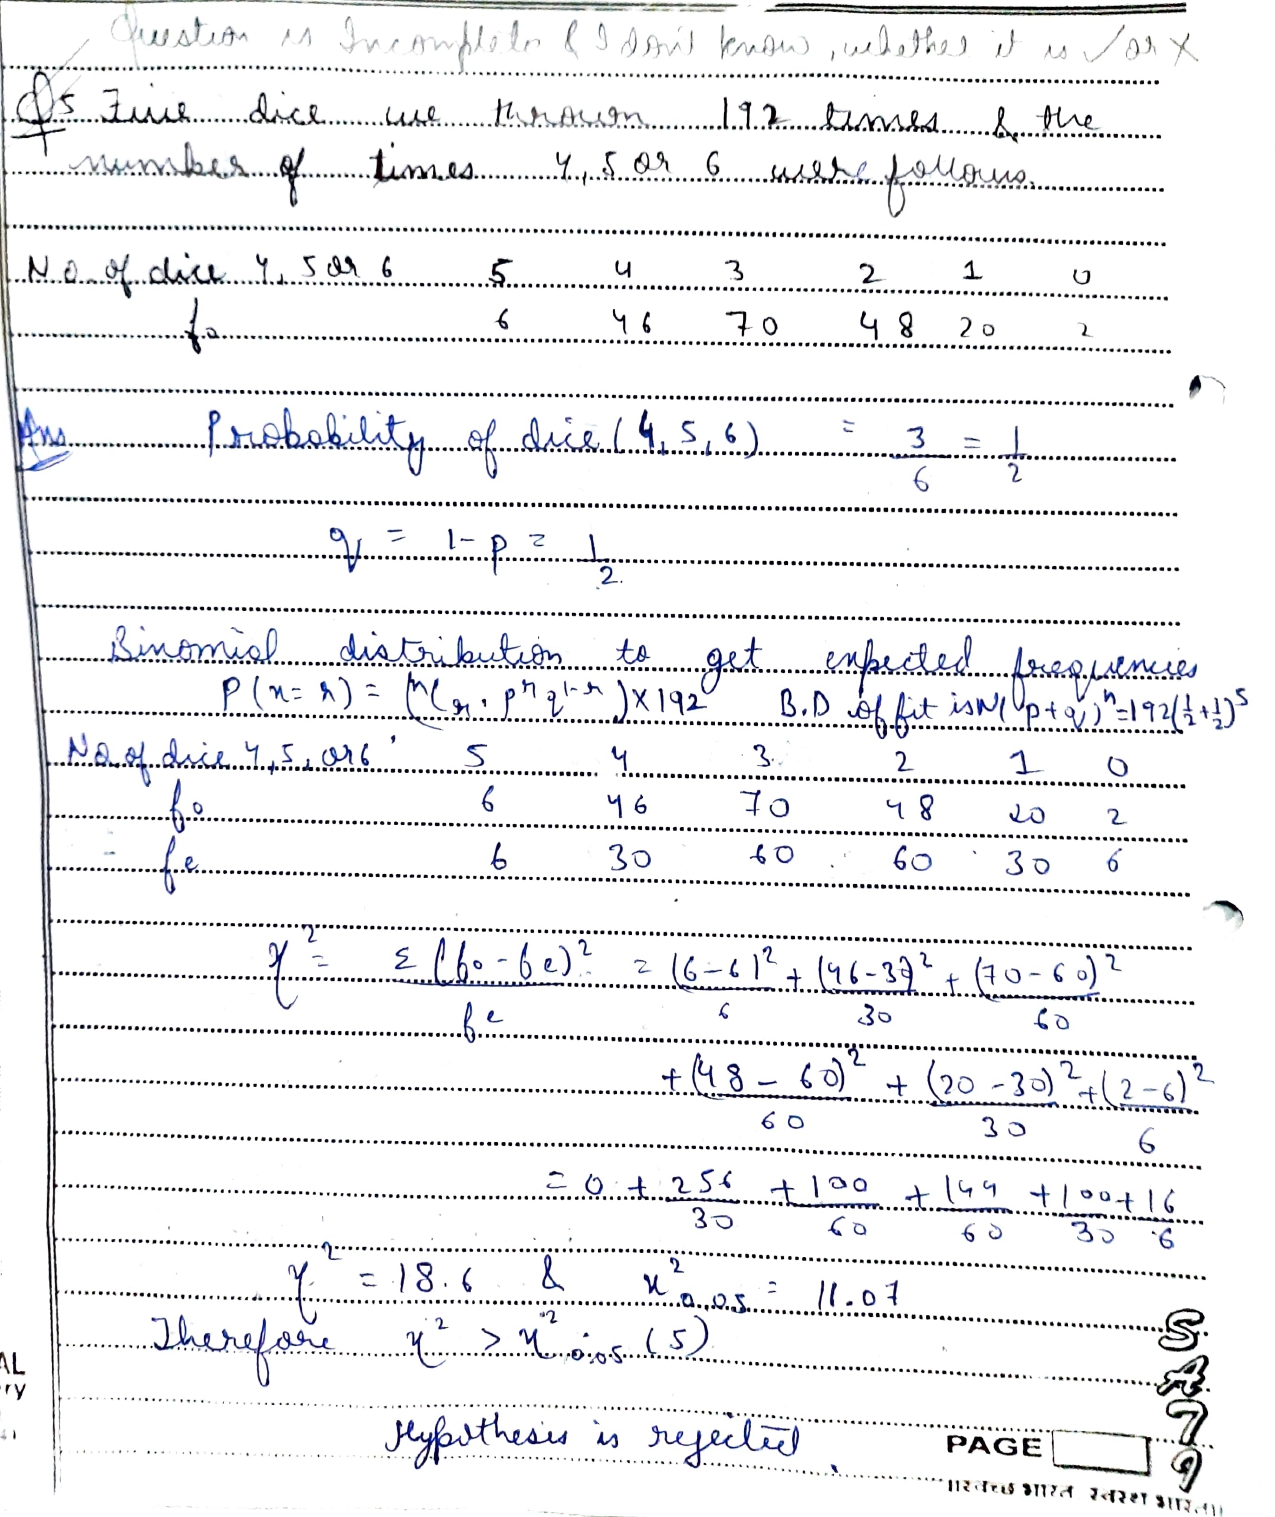 Question is Incomplete & I don't know, whether it is ✓ or X
Q5 Five dice we thrown 192 times & the
number of times 4, 5 or 6 were follows.
No. of dice 4, 5 or 6 5 4 3 2 1 0
fo 6 46 70 48 20 2
Ans Probability of dice (4, 5, 6) = 3/6 = 1/2
q = 1-p = 1/2.
Binomial distribution to get expected frequencies
P(x=r) = (ⁿCr . pʳ q¹⁻ʳ) x 192 B.D of fit is N(p+q)ⁿ=192(1/2+1/2)⁵
No. of dice 4, 5, or 6 5 4 3 2 1 0
fo 6 46 70 48 20 2
fe 6 30 60 60 30 6
χ² = Σ(fo-fe)²/fe = (6-6)²/6 + (46-30)²/30 + (70-60)²/60
+ (48-60)²/60 + (20-30)²/30 + (2-6)²/6
= 0 + 256/30 + 100/60 + 144/60 + 100/30 + 16/6
χ² = 18.6 & χ²0.05 = 11.07
Therefore χ² > χ²0.05 (5)
Hypothesis is rejected
PAGE
SA79
AL
ry